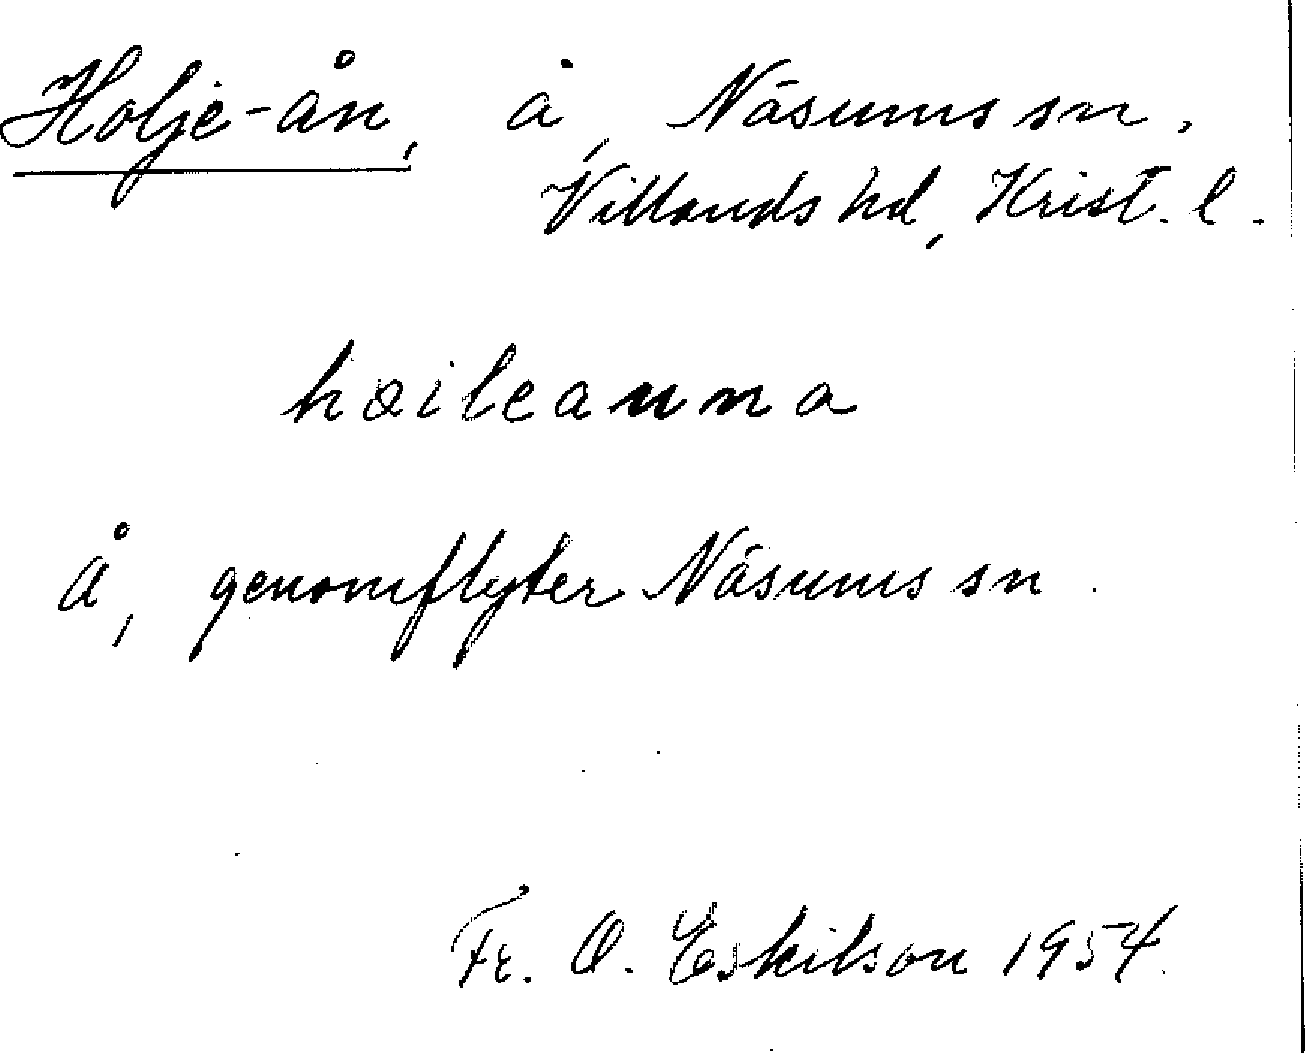 Holje-ån, å, Näsums sn,
Villands hd, Krist. l.
hæileauna
Å, genomflyter Näsums sn.
Fr. O. Eskilson 1954.